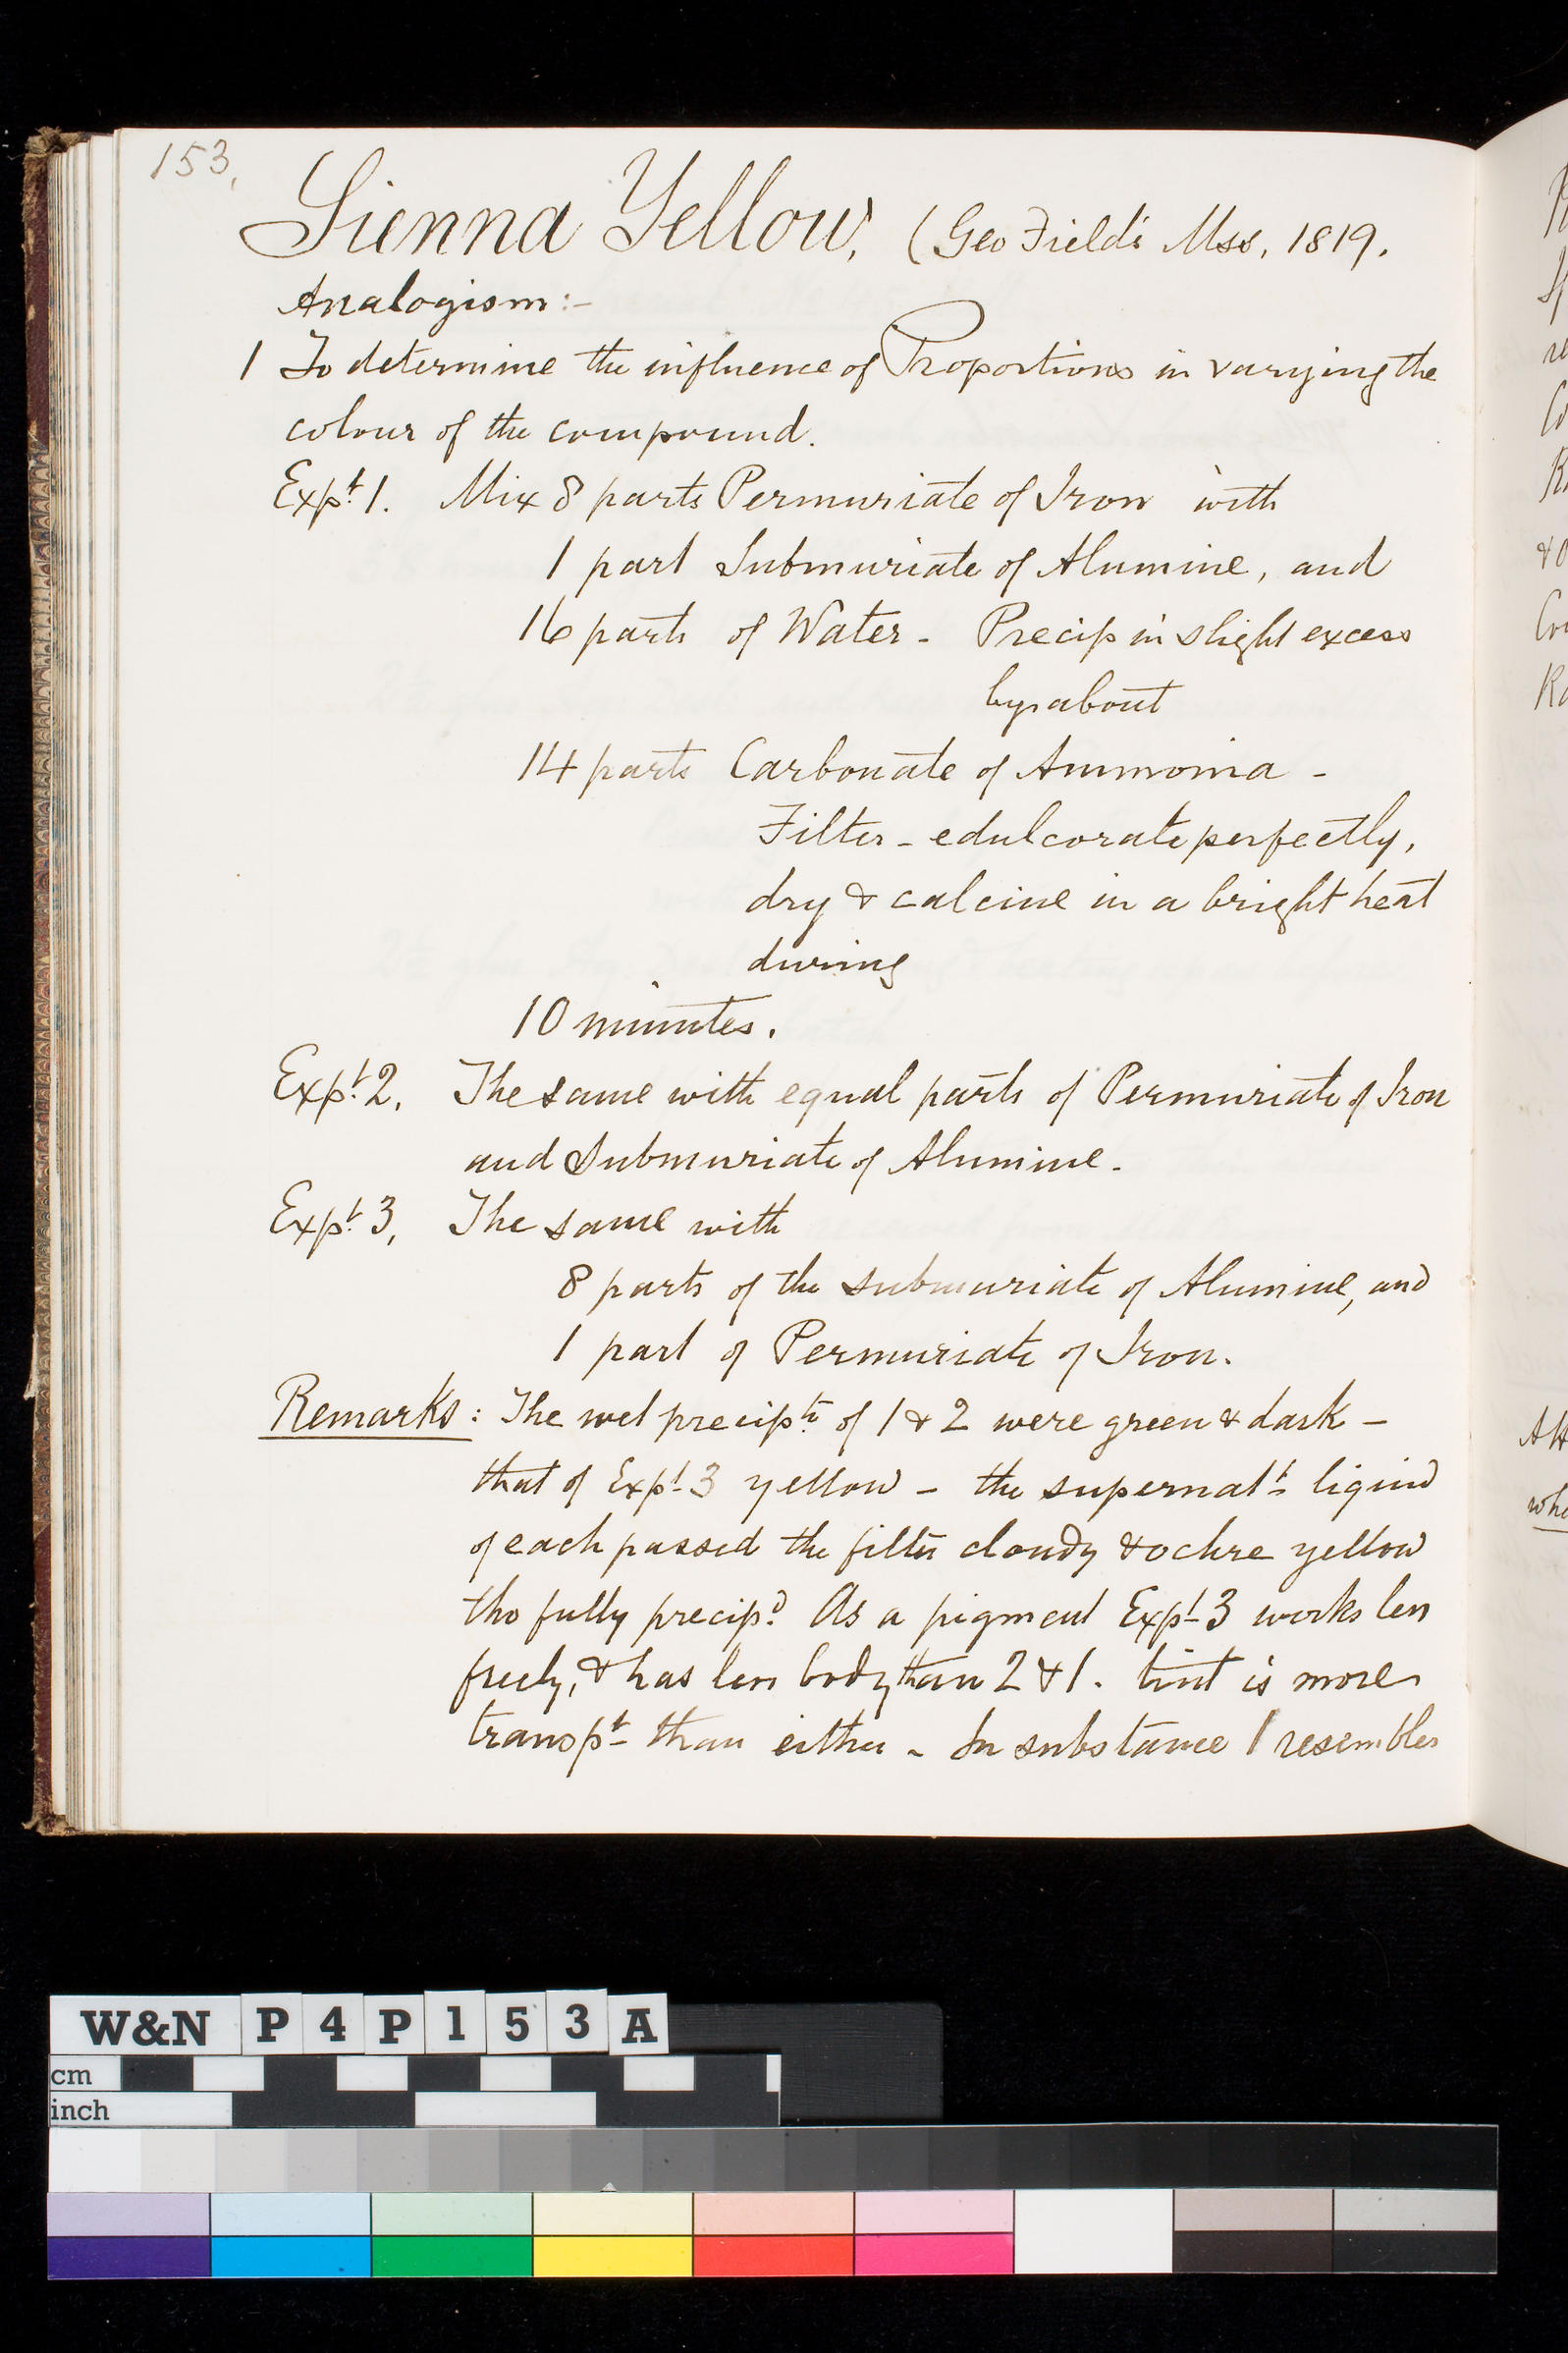 153,
Sienna Yellow, (Geo Field's Mss, 1819.
Analogism:-
1 To determine the influence of Proportions in varying the
colour of the compound.
Expt. 1. Mix 8 parts Permuriate of Iron with
1 part Submuriate of Alumine, and
16 parts of Water - Precip in slight excess
by about
14 parts Carbonate of Ammonia -
Filter - edulcorate perfectly,
dry & calcine in a bright heat
during
10 minutes.
Expt. 2, The same with equal parts of Permuriate of Iron
and Submuriate of Alumine.
Expt. 3, The same with
8 parts of the submuriate of Alumine, and
1 part of Permuriate of Iron.
Remarks: The wet precipts. of 1 & 2 were green & dark -
that of Expt. 3 yellow - the supernatt. liquid
of each passed the filter cloudy & ochre yellow
tho fully precipd. As a pigment Expt. 3 works less
freely, & has less body than 2 & 1. tint is more
transpt. than either - In substance 1 resembles
W&N P4P153A
cm
inch